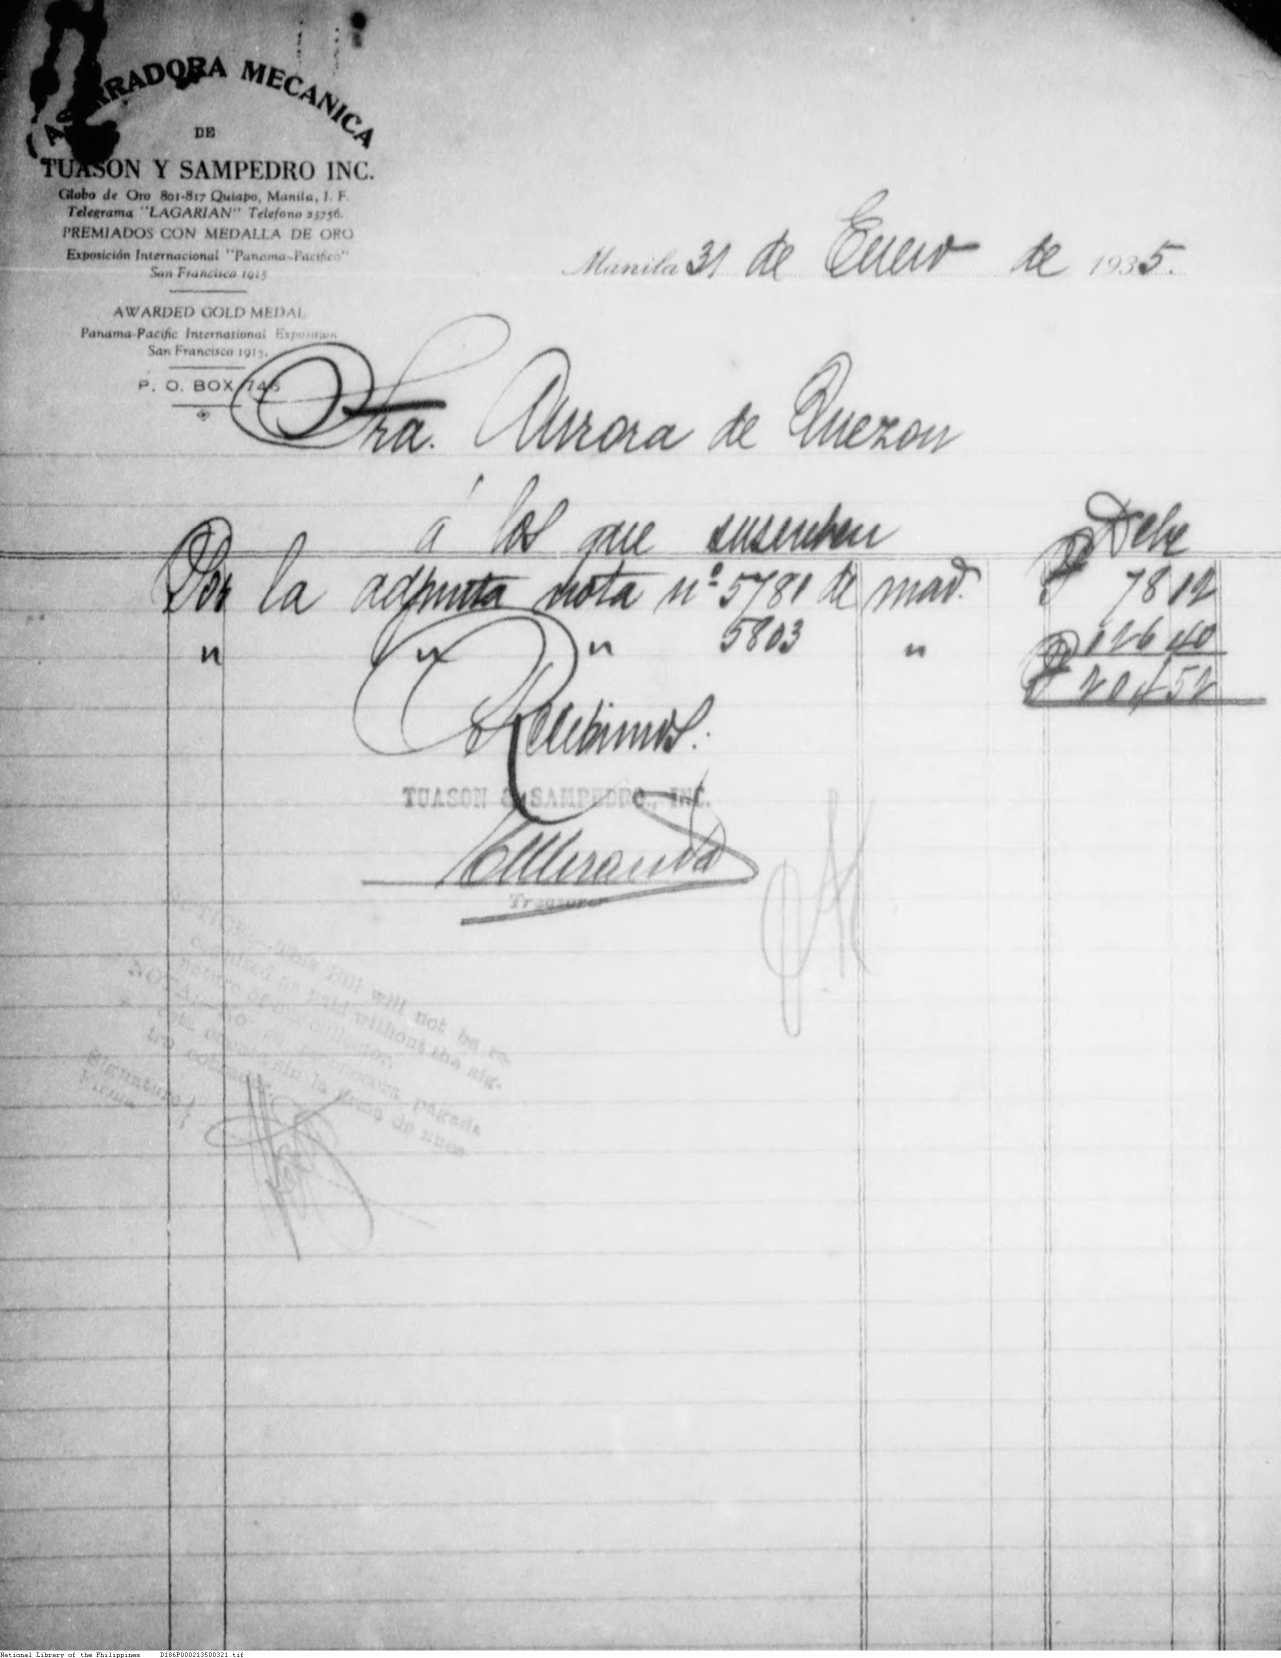 ASERRADORA MECANICA
DE
TUASON Y SAMPEDRO INC.
Globo de Oro 801-817 Quiapo, Manila, I. F.
Telegrama "LAGARIAN" Telefono 23756.
PREMIADOS CON MEDALLA DE ORO
Exposición Internacional "Panama-Pacifico"
San Francisco 1915
AWARDED GOLD MEDAL
Panama-Pacific International Exposition
San Francisco 1915.
P. O. BOX 746
Manila 31 de Enero de 1935.
Sra. Aurora de Quezon
á los que suscriben Debe
Por la adjunta nota nº 5781 de mad. ₱ 78 12
" " " 5803 " 126 40
₱ 204 52
Recibimos.
TUASON & SAMPEDRO, INC.
Treasurer
NOTICE.—This bill will not be re-
cognized as paid without the sig-
nature of our collector.
NOTA.—No se reconoce pagada
esta cuenta sin la firma de nues-
tro cobrador.
Signature
Firma
National Library of the Philippines D186P000213500321.tif